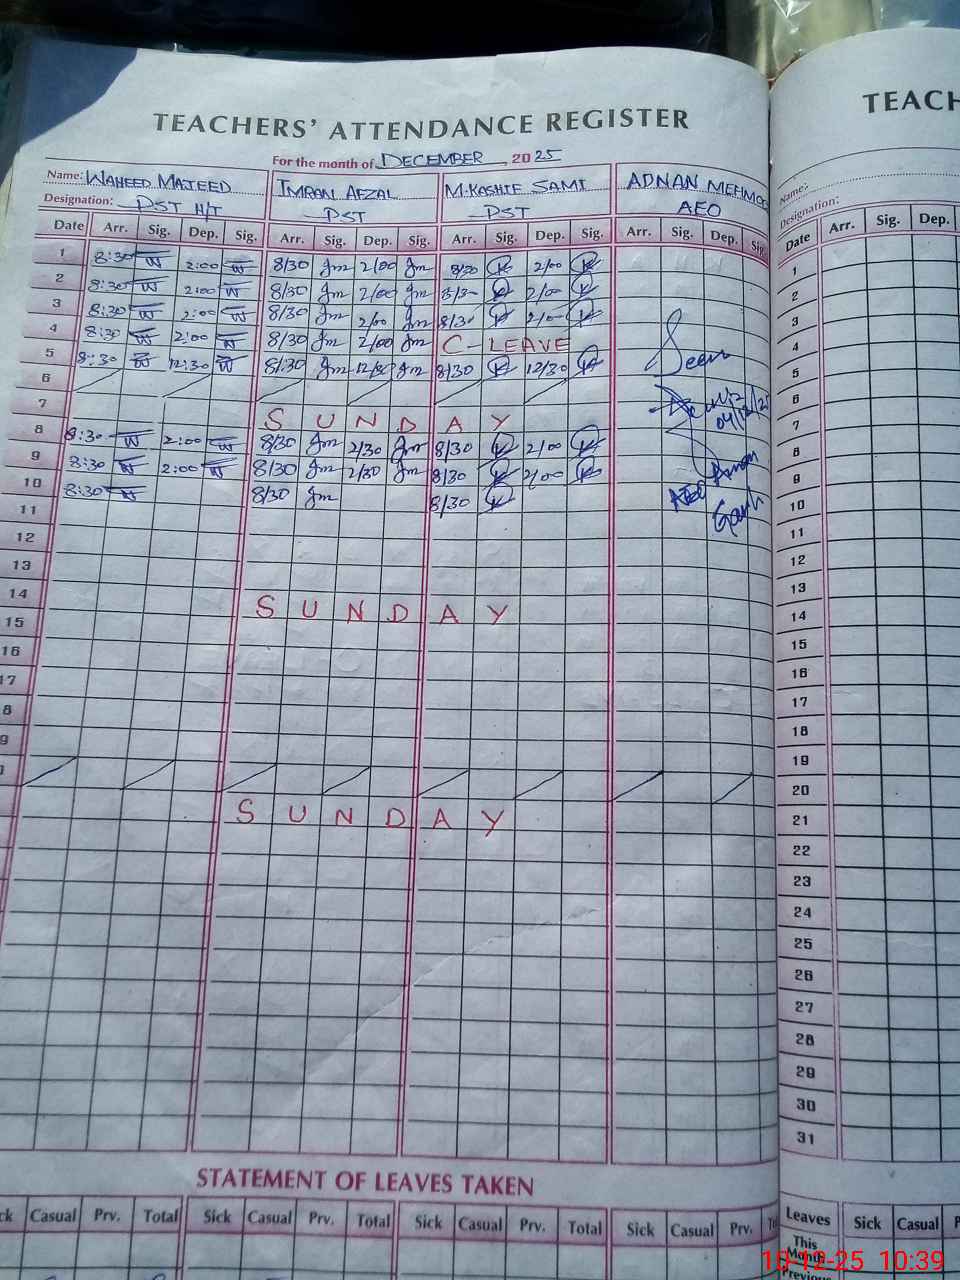 TEACHERS' ATTENDANCE REGISTER
TEACH
For the month of DECEMBER 2025
Name: WAHEED MAJEED IMRAN AFZAL M.KASHIF SAMI ADNAN MEHMOO
Designation: PST H/T PST PST AEO
Name:
Designation:
Date Arr. Sig. Dep. Sig. Arr. Sig. Dep. Sig. Arr. Sig. Dep. Sig. Arr. Sig. Dep. Sig.
Date Arr. Sig. Dep.
1 8:30 2:00 8/30 2/00 8/30 2/00
2 8:30 2:00 8/30 2/00 8/30 2/00
3 8:30 2:00 8/30 2/00 8/30 2/00
4 8:30 2:00 8/30 2/00 C-LEAVE
5 8:30 12:30 8/30 12/30 8/30 12/30
6
7 SUNDAY
8 8:30 2:00 8/30 2/30 8/30 2/00
9 8:30 2:00 8/30 2/30 8/30 2/00
10 8:30 8/30 8/30
11
12
13
14 SUNDAY
15
16
17
8
9
Seen
04/12/25
AEO
SUNDAY
1
2
3
4
5
6
7
8
9
10
11
12
13
14
15
16
17
18
19
20
21
22
23
24
25
26
27
28
29
30
31
STATEMENT OF LEAVES TAKEN
ck Casual Prv. Total Sick Casual Prv. Total Sick Casual Prv. Total Sick Casual Prv. T
Leaves Sick Casual P
This
Month
Previous
10-12-25 10:39